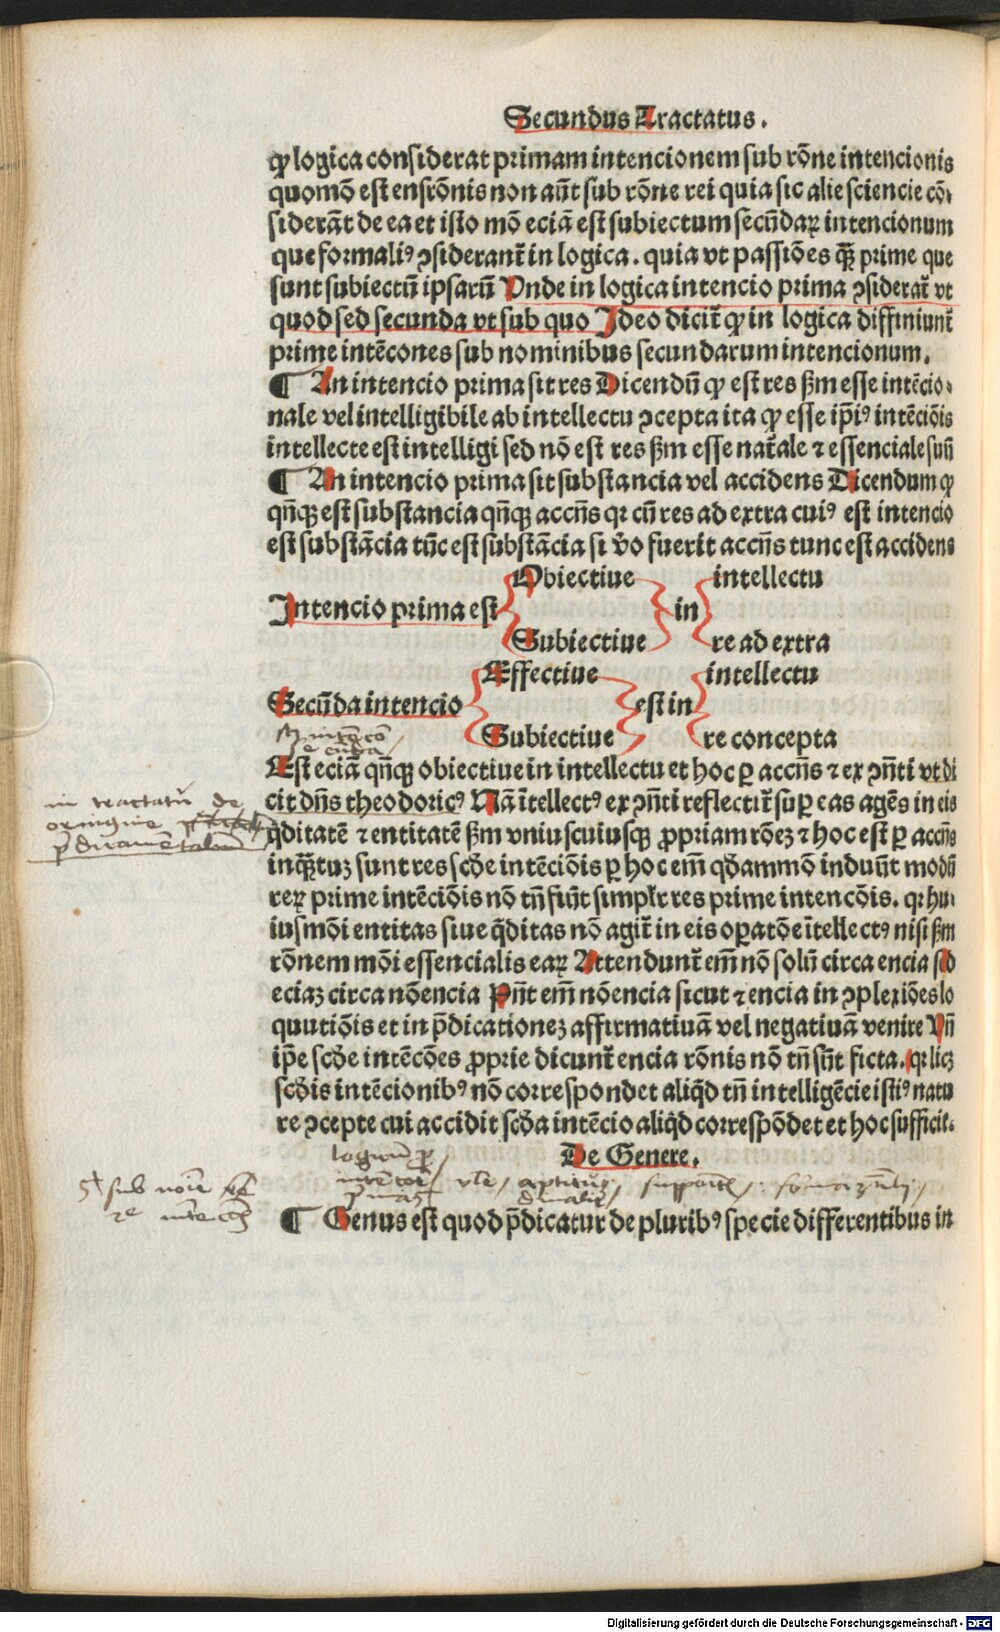 Secundus Tractatus.
ꝙ logica considerat primam intencionem sub rōne intencionis
quomō est ens rōnis non aūt sub rōne rei quia sic alie sciencie cō-
siderāt de ea et isto mō eciā est subiectum secūdaꝝ intencionum
que formaliꝰ ↄsiderant̄ in logica. quia vt passiōes qm̄ prime que
sunt subiectū ipsarū Vnde in logica intencio prima ↄsiderat̄ vt
quod sed secunda vt sub quo Ideo dicit̄ ꝙ in logica diffiniunt̄
prime intēcones sub nominibus secundarum intencionum.
¶ An intencio prima sit res Dicendū ꝙ est res ẜm esse intēcio-
nale vel intelligibile ab intellectu ↄcepta ita ꝙ esse ip̄iꝰ intēciōis
intellecte est intelligi sed nō est res ẜm esse nat̄ale ⁊ essenciale suū
¶ An intencio prima sit substancia vel accidens Dicendum ꝙ
qn̄qꝫ est substancia qn̄qꝫ accn̄s qꝛ cū res ad extra cuiꝰ est intencio
est substācia tūc est substācia si v̄o fuerit accn̄s tunc est accidens
Obiectiue intellectu
Intencio prima est in
Subiectiue re ad extra
Effectiue intellectu
Secūda intencio est in
Subiectiue re concepta
Est eciā qn̄qꝫ obiectiue in intellectu et hoc ꝑ accn̄s ⁊ ex ↄn̄ti vt di
cit dn̄s theodoricꝰ Nā ītellectꝰ ex ↄn̄ti reflectit̄ suꝑ eas agēs in eis
q̄ditatē ⁊ entitatē ẜm vniuscuiusqꝫ ꝓpriam rōeꝫ ⁊ hoc est ꝑ accn̄s
inqꝫtuꝫ sunt res scd̄e intēciōis ꝑ hoc em̄ qd̄ammō induūt modū
reꝝ prime intēciōis nō tn̄ fiūt simpl̄r res prime intencōis. qꝛ hu-
iusmōi entitas siue q̄ditas nō agit̄ in eis oꝑatōe ītellectꝰ nisi ẜm
rōnem mōi essencialis eaꝝ Attendunt̄ em̄ nō solū circa encia sed
eciaꝫ circa nōencia Pn̄t em̄ nōencia sicut ⁊ encia in ↄplexiōes lo
quutiōis et in p̄dicationeꝫ affirmatiuā vel negatiuā venire Vn̄
ip̄e scd̄e intēcōes ꝓprie dicunt̄ encia rōnis nō tn̄ sūt ficta. qꝛ licꝫ
scd̄is intēcionibꝰ nō correspondet aliq̄d tn̄ intelligēcie istiꝰ natu
re ↄcepte cui accidit scd̄a intēcio aliq̄d correspōdet et hoc sufficit.
in tractatu de
origine
p̄dicamētalium
De Genere.
¶ Genus est quod p̄dicatur de pluribꝰ specie differentibus in
Digitalisierung gefördert durch die Deutsche Forschungsgemeinschaft - DFG